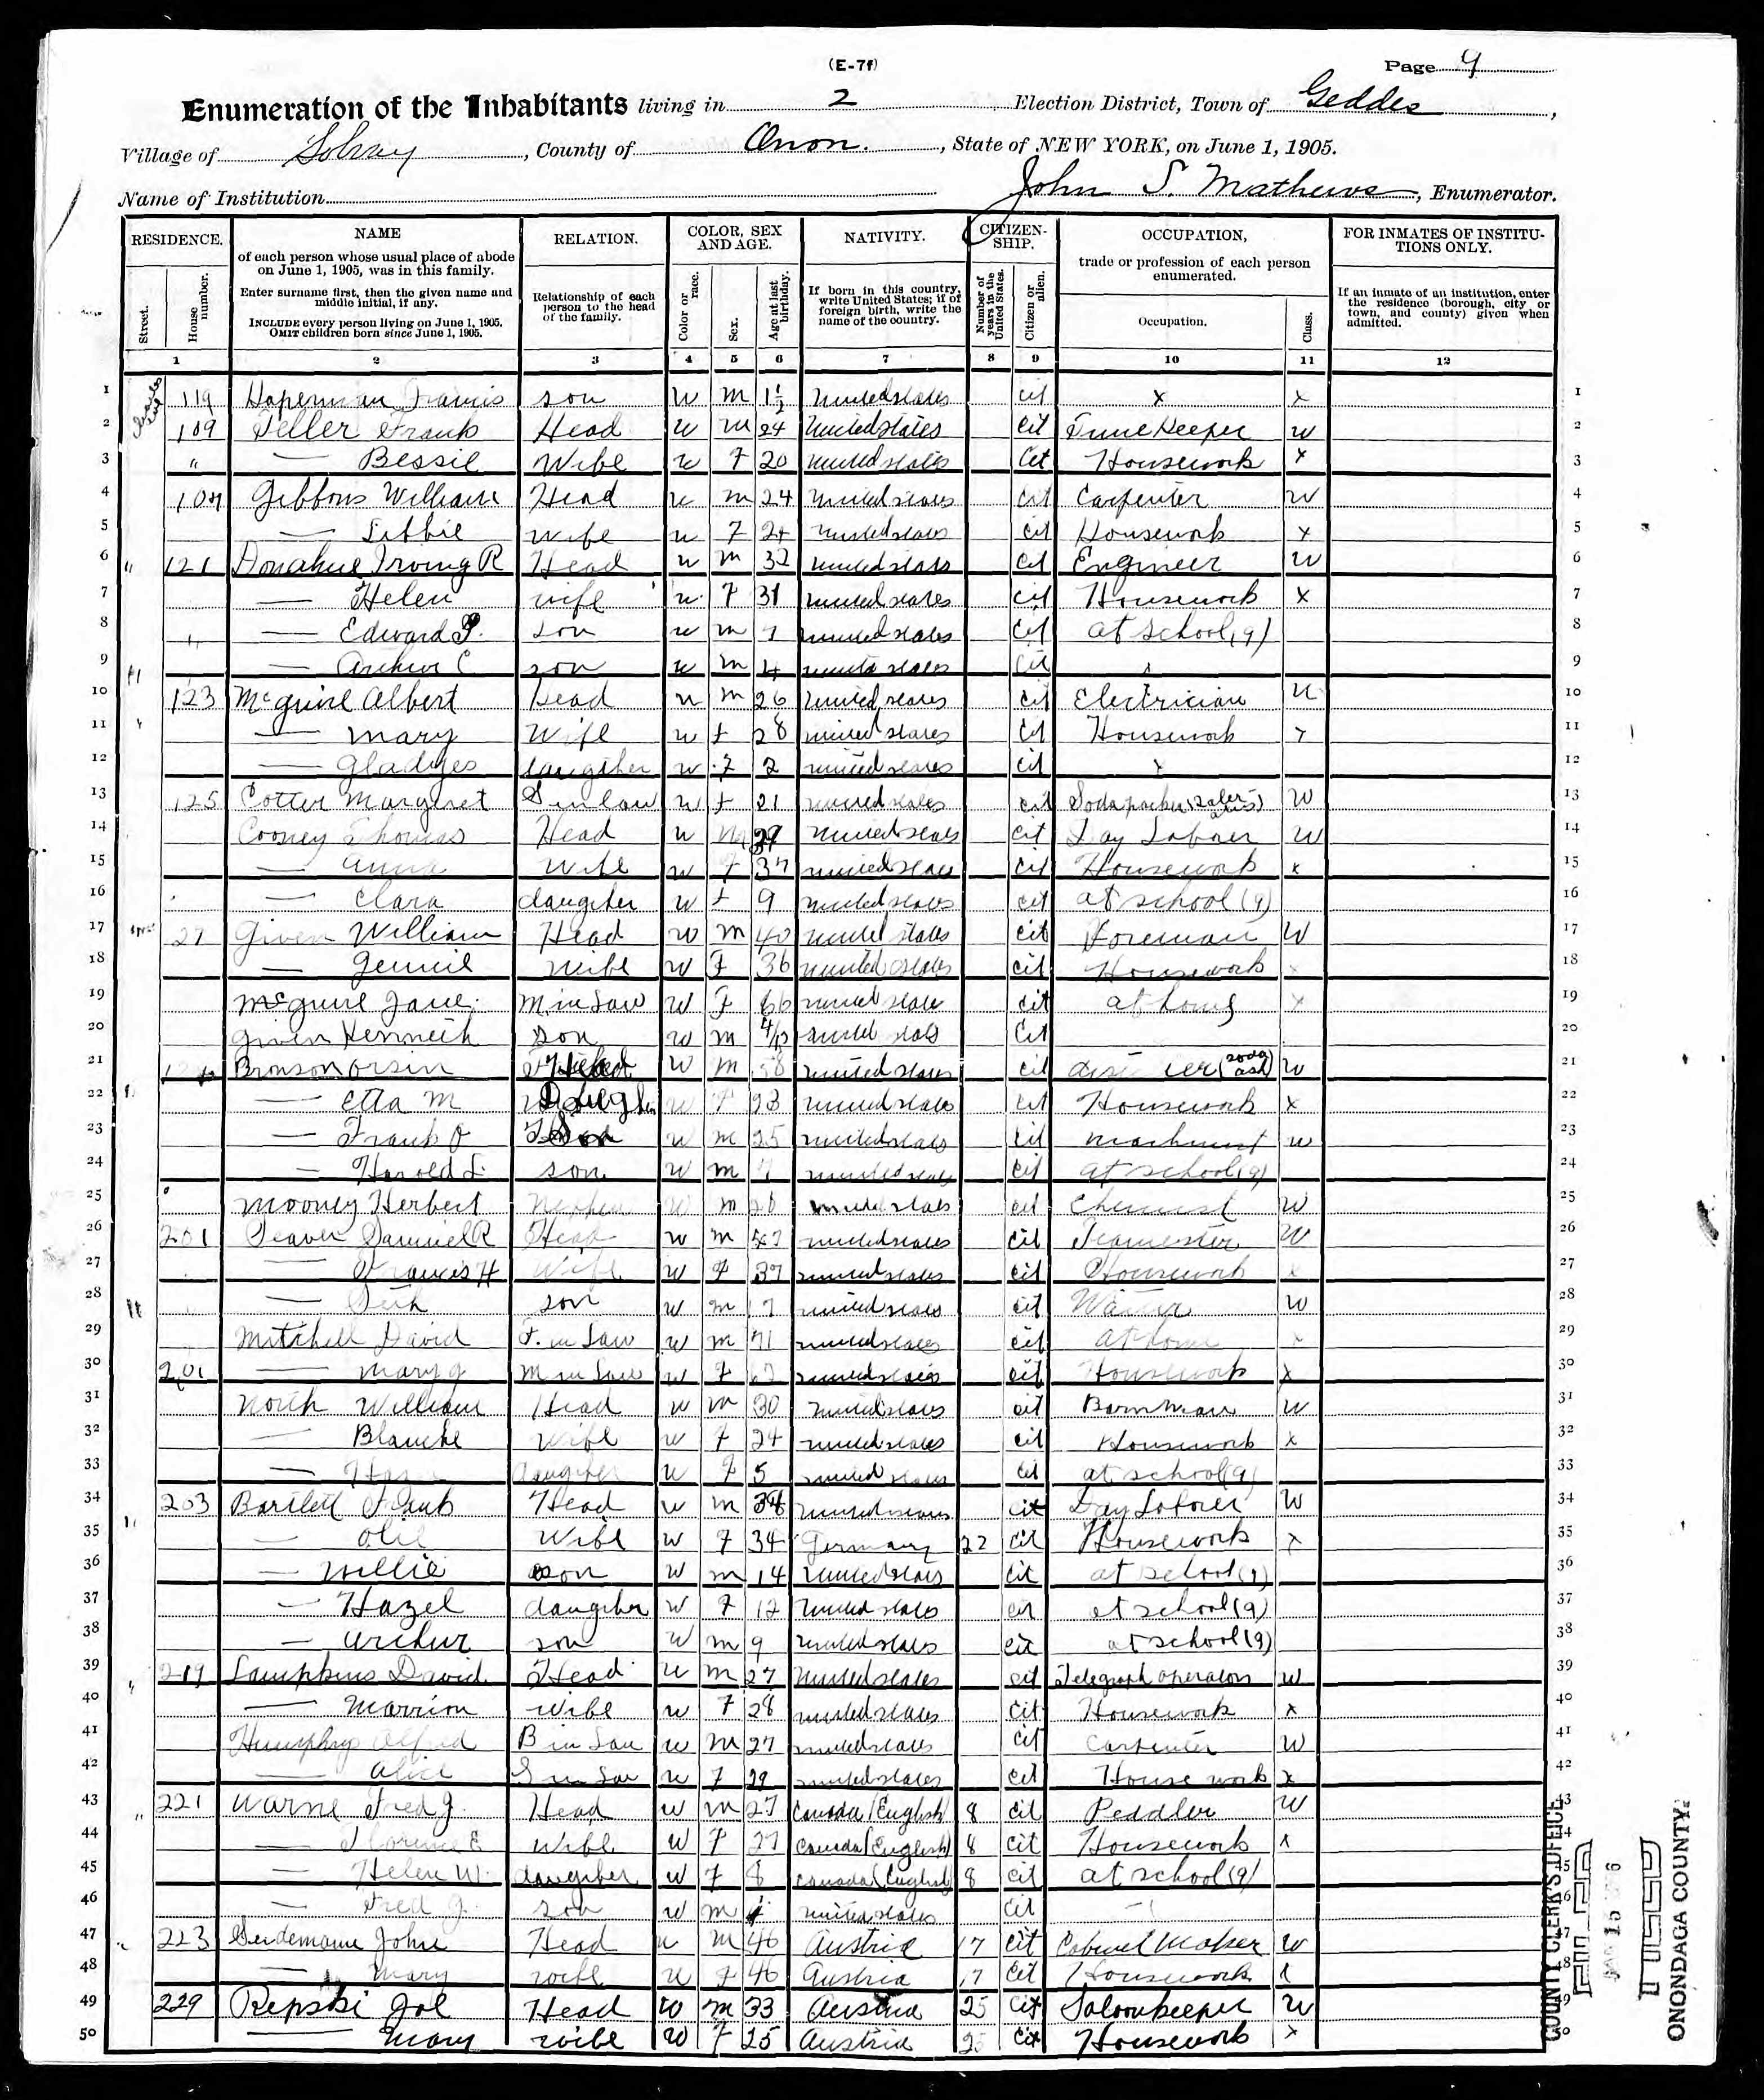 (E-7f)
Page 9
Enumeration of the Inhabitants living in 2 Election District, Town of Geddes,
Village of Solvay, County of Onon., State of NEW YORK, on June 1, 1905.
Name of Institution John S. Mathews, Enumerator.
RESIDENCE. NAME RELATION. COLOR, SEX AND AGE. NATIVITY. CITIZEN-SHIP. OCCUPATION, FOR INMATES OF INSTITU-TIONS ONLY.
Street. House number. of each person whose usual place of abode on June 1, 1905, was in this family. Enter surname first, then the given name and middle initial, if any. INCLUDE every person living on June 1, 1905. OMIT children born since June 1, 1905. Relationship of each person to the head of the family. Color or race. Sex. Age at last birthday. If born in this country, write United States; if of foreign birth, write the name of the country. Number of years in the United States. Citizen or alien. trade or profession of each person enumerated. Occupation. Class. If an inmate of an institution, enter the residence (borough, city or town, and county) given when admitted.
1 2 3 4 5 6 7 8 9 10 11 12
1 119 Francis son W m 1½ United states cit x x 1
2 109 Teller Frank Head W m 24 United states cit Time Keeper W 2
3 " — Bessie Wife W F 20 United states cit Housework x 3
4 Gibbons William Head W m 24 United states cit Carpenter W 4
5 — Libbie wife W F 24 United states cit Housework x 5
6 " 121 Donahue Irving R Head W m 32 United states cit Engineer W 6
7 — Helen wife W F 31 United states cit Housework x 7
8 " — Edward son W m 7 United states cit at school (9) 8
9 " — Arthur C son W m 4 United states cit x 9
10 123 McGuire Albert Head W m 26 United states cit Electrician W 10
11 " — Mary Wife W F 28 United states cit Housework x 11
12 — Gladyes daughter W F 2 United states cit x 12
13 125 Cotter Margaret S in law W F 21 United states cit Soda packer W 13
14 Cooney Thomas Head W m United states cit Day Laborer W 14
15 — Anna Wife W F 37 United states cit Housework x 15
16 — Clara daughter W F 9 United states cit at school (9) 16
17 27 Given William Head W m 40 United states cit Foreman W 17
18 — Jennie Wife W F 36 United states cit Housework x 18
19 McGuire Jane M in Law W F 66 United states cit at home x 19
20 Given Kenneth son W m United states cit 20
21 Bronson Orsin Head W m 58 United states cit (soda ash) W 21
22 — Etta M W F 23 United states cit Housework x 22
23 — Frank O Son W m 25 United states cit machinist W 23
24 — Harold L. son W m United states cit at school (9) 24
25 Mooney Herbert Nephew W m United states cit Chemist W 25
26 201 Daniel R Head W m 47 United states cit Teamster W 26
27 — Francis H Wife W F 37 United states cit Housework x 27
28 " — son W m United states cit W 28
29 Mitchell David F. in Law W m 71 United states cit at home x 29
30 201 — Mary J M in Law W F United states cit Housework x 30
31 North William Head W m 30 United states cit Barn Man W 31
32 — Blanche Wife W F 24 United states cit Housework x 32
33 — daughter W F 5 United states cit at school (9) 33
34 203 Bartlett Frank Head W m United states cit Day Laborer W 34
35 " — Olie Wife W F 34 Germany 22 cit Housework x 35
36 — Willie son W m 14 United states cit at school (9) 36
37 — Hazel daughter W F 12 United states cit at school (9) 37
38 — Arthur son W m 9 United states cit at school (9) 38
39 219 Lumpkins David Head W m 27 United states cit Telegraph operator W 39
40 " — Marrion wife W F 28 United states cit Housework x 40
41 Humphry Alfred B in Law W m 27 United states cit Carpenter W 41
42 — Alice S in Law W F 29 United states cit House work x 42
43 " 221 Warne Fred J. Head W m 27 Canada (English) 8 cit Peddler W 43
44 — Florence E wife W F 27 Canada (English) 8 cit Housework x 44
45 — Helen W. daughter W F 8 Canada (English) 8 cit at school (9) 45
46 — Fred J. son W m United states cit 46
47 223 John Head W m 46 Austria 17 cit Cabinet Maker W 47
48 — Mary wife W F 46 Austria 17 cit Housework x 48
49 229 Repski Joe Head W m 33 Austria 25 cit Saloonkeeper W 49
50 — Mary wife W F 25 Austria cit Housework x 50
COUNTY CLERK'S OFFICE
FILED
ONONDAGA COUNTY.